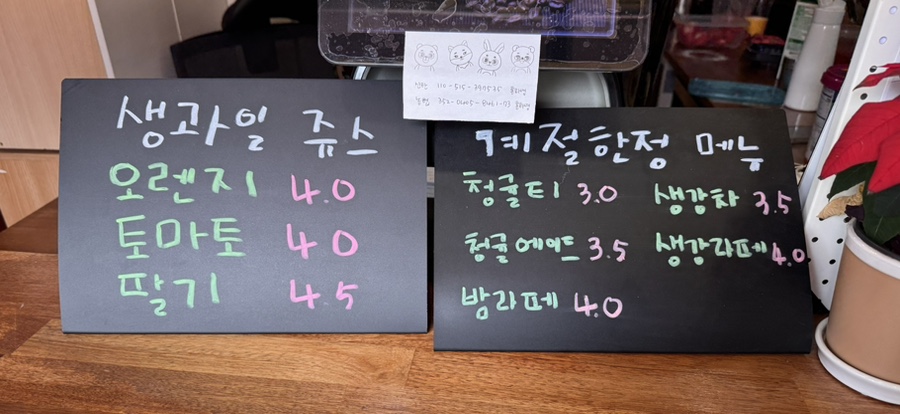 생과일 쥬스
오렌지 4.0
토마토 4.0
팔기 4.5
계절한정 메뉴
청귤티 3.0
생강차 3.5
청귤에이드 3.5
생강라페 4.0
밤라페 4.0